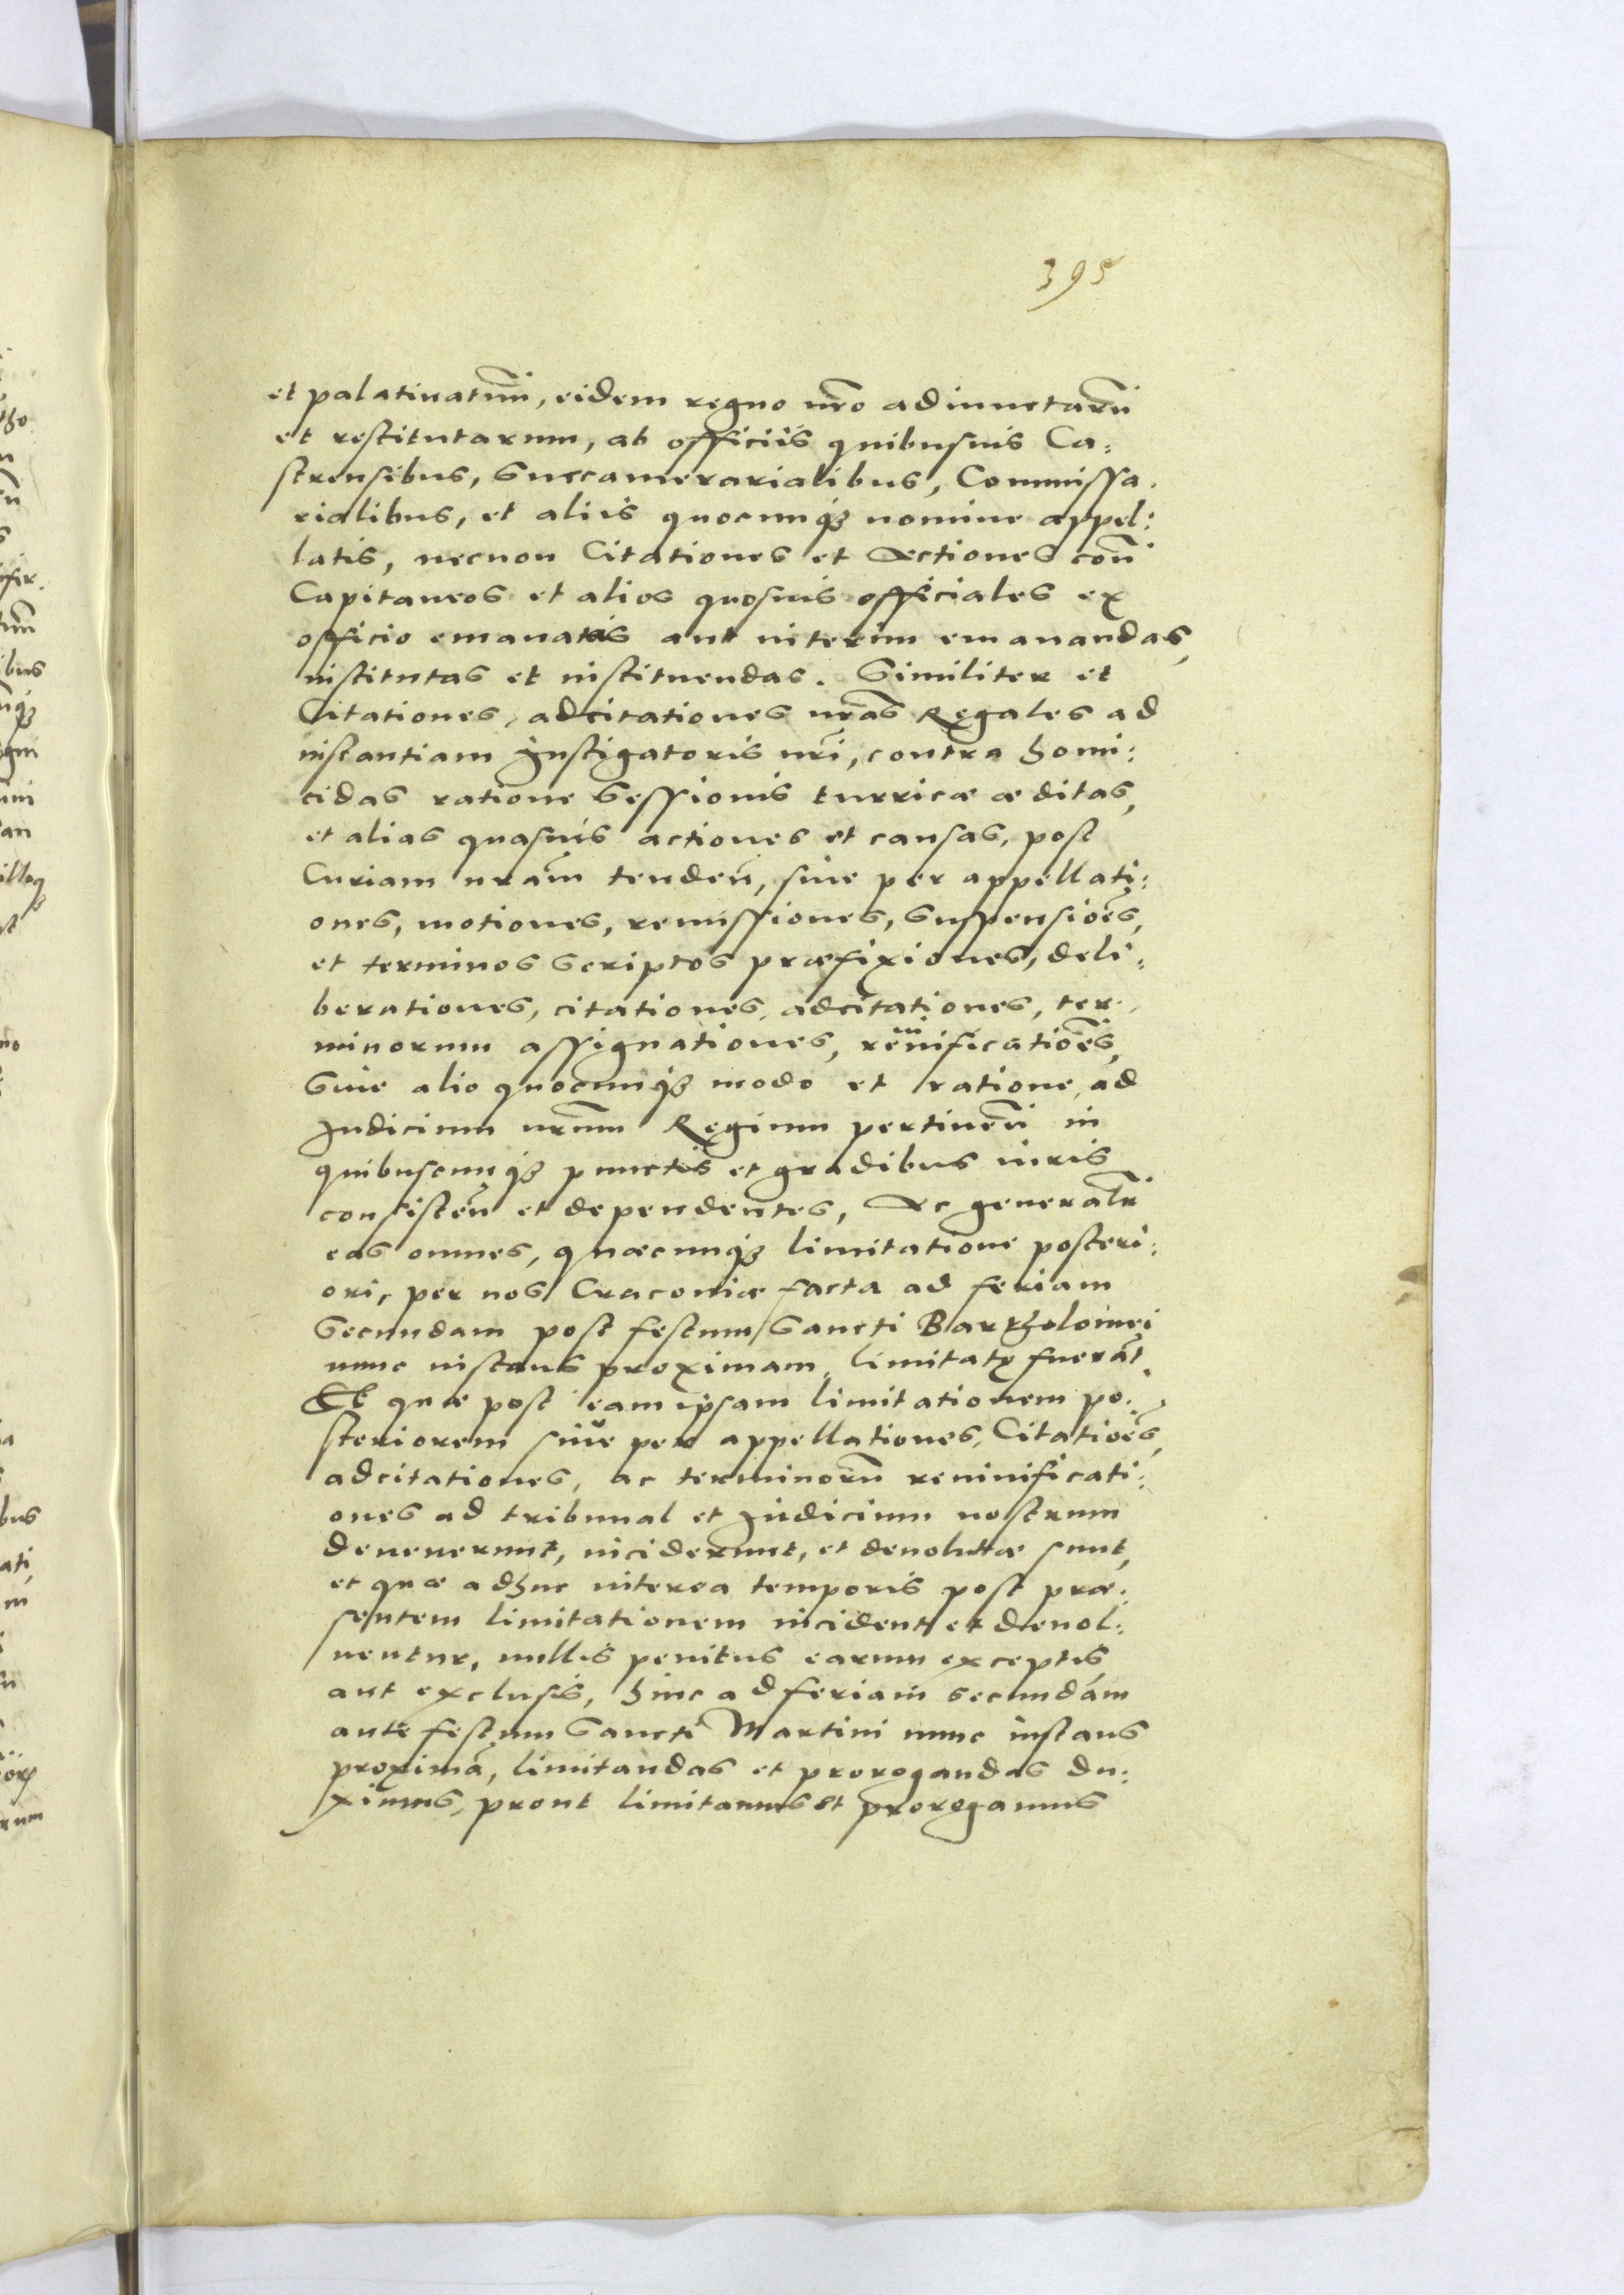 395
et palatinatuum, eidem regno nr̃o adiunctarũ
et restitutarum, ab officiis quibusuis Ca:
strensibus, Succamerarialibus, Commissa.
rialibus, et aliis quocunq₃ nomine appel:
latis, necnon Citationes et Actiones con̄
Capitaneos et alios quosuis officiales ex
officio emanatas aut interim emanandas,
institutas et instituendas. Similiter et
Citationes, adcitationes nr̃as Regales ad
instantiam Instigatoris nr̃i, contra homi:
cidas ratione Sessionis turricæ æditas,
et alias quasuis actiones et causas, post
Curiam nr̃am tendeñ, siue per appellati:
ones, motiones, remissiones, Suspensiões,
et terminos scriptos præfixiones, deli:
berationes, citationes, adcitationes, ter.
minorum assignationes, reiñificatiões,
Siue alio quocunq₃ modo et ratione, ad
Iudicium nr̃um Regium pertineñ in
quibuscunq₃ punctis et gradibus iuris
consisteñ et dependentes, Ac generalr̃
eas omnes, quæcunq₃ limitatione posteri:
ori, per nos Cracouiæ facta ad feriam
Secundam post festum Sancti Bartholomei
nunc instans proximam, limitatę fuerãt.
Et quæ post eam ipsam limitationem po:
steriorem siŭe per appellationes, Citatiões,
adcitationes, ac terminorũ reinificati:
ones ad tribunal et Iudicium nostrum
deuenerunt, inciderunt, et deuolutæ sunt,
et quæ adhuc interea temporis post præ:
sentem limitationem incident et deuol:
uentur, nullis penitus earum exceptis
aut exclusis, hinc ad feriam secundam
ante festum Sancti Martini nunc instans
proximã, limitandas et prorogandas du:
ximus, prout limitamus et prorogamus